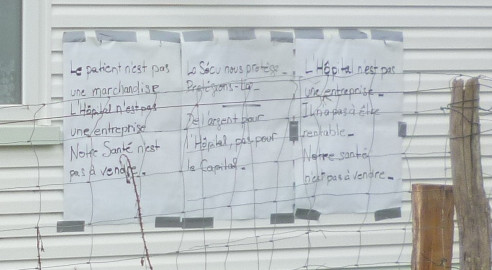 Le patient n'est pas
une marchandise
L'Hôpital n'est pas
une entreprise
Notre Santé n'est
pas à vendre.
La Sécu nous protège -
Protégeons-la -
De l'argent pour
l'Hôpital, pas pour
le Capital -
L'Hôpital n'est pas
une entreprise.
Il n'a pas à être
rentable -
Notre santé
n'est pas à vendre -